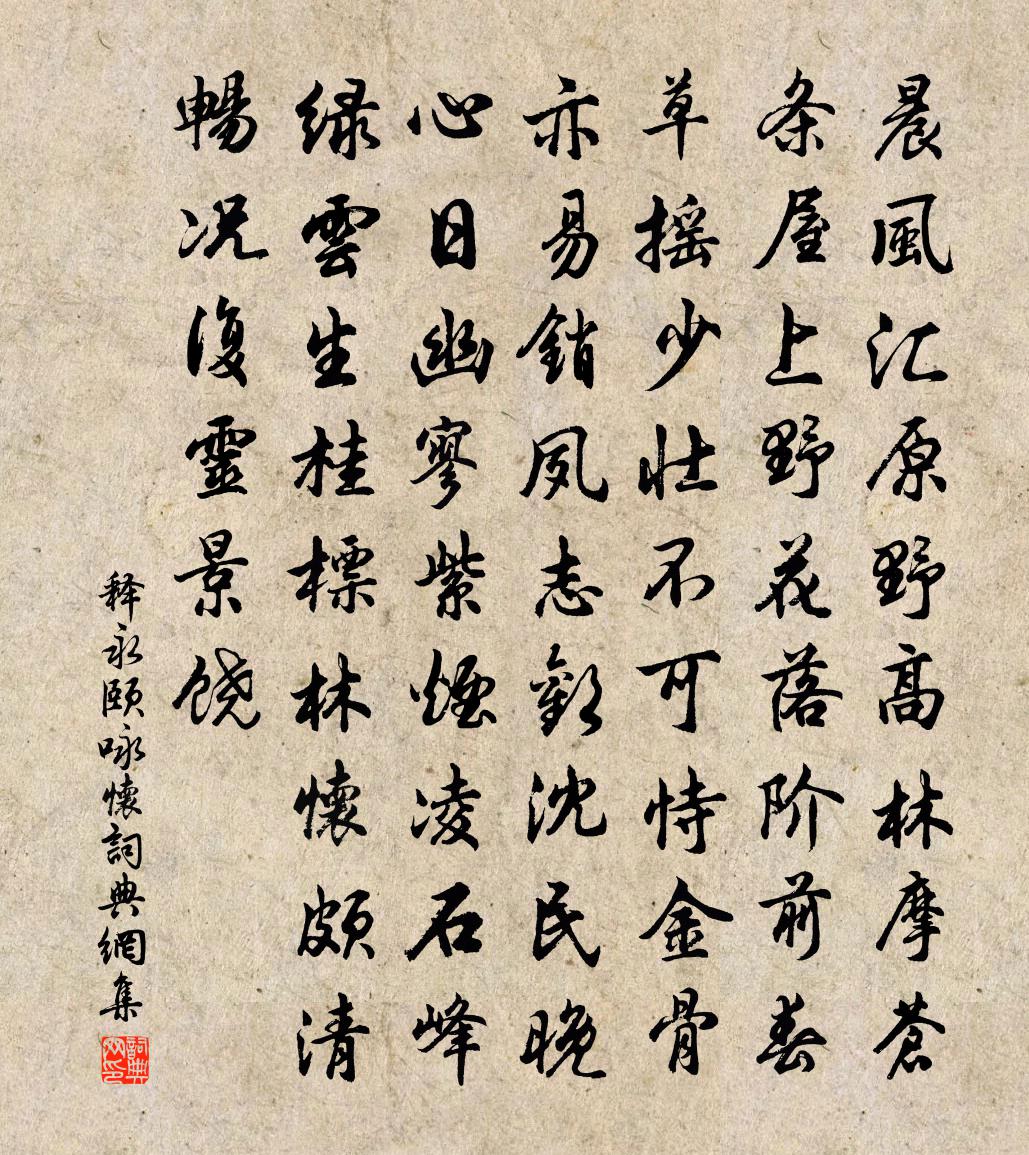 晨風汇原野高林摩蒼
条屋上野花落阶前春
草摇少壮不可恃金骨
亦易銷夙志歡沈民晚
心日幽寥紫煙凌石峰
绿雲生桂標林懷颇清
暢况復靈景饶
释永颐咏懷詞典網集
詞典网印